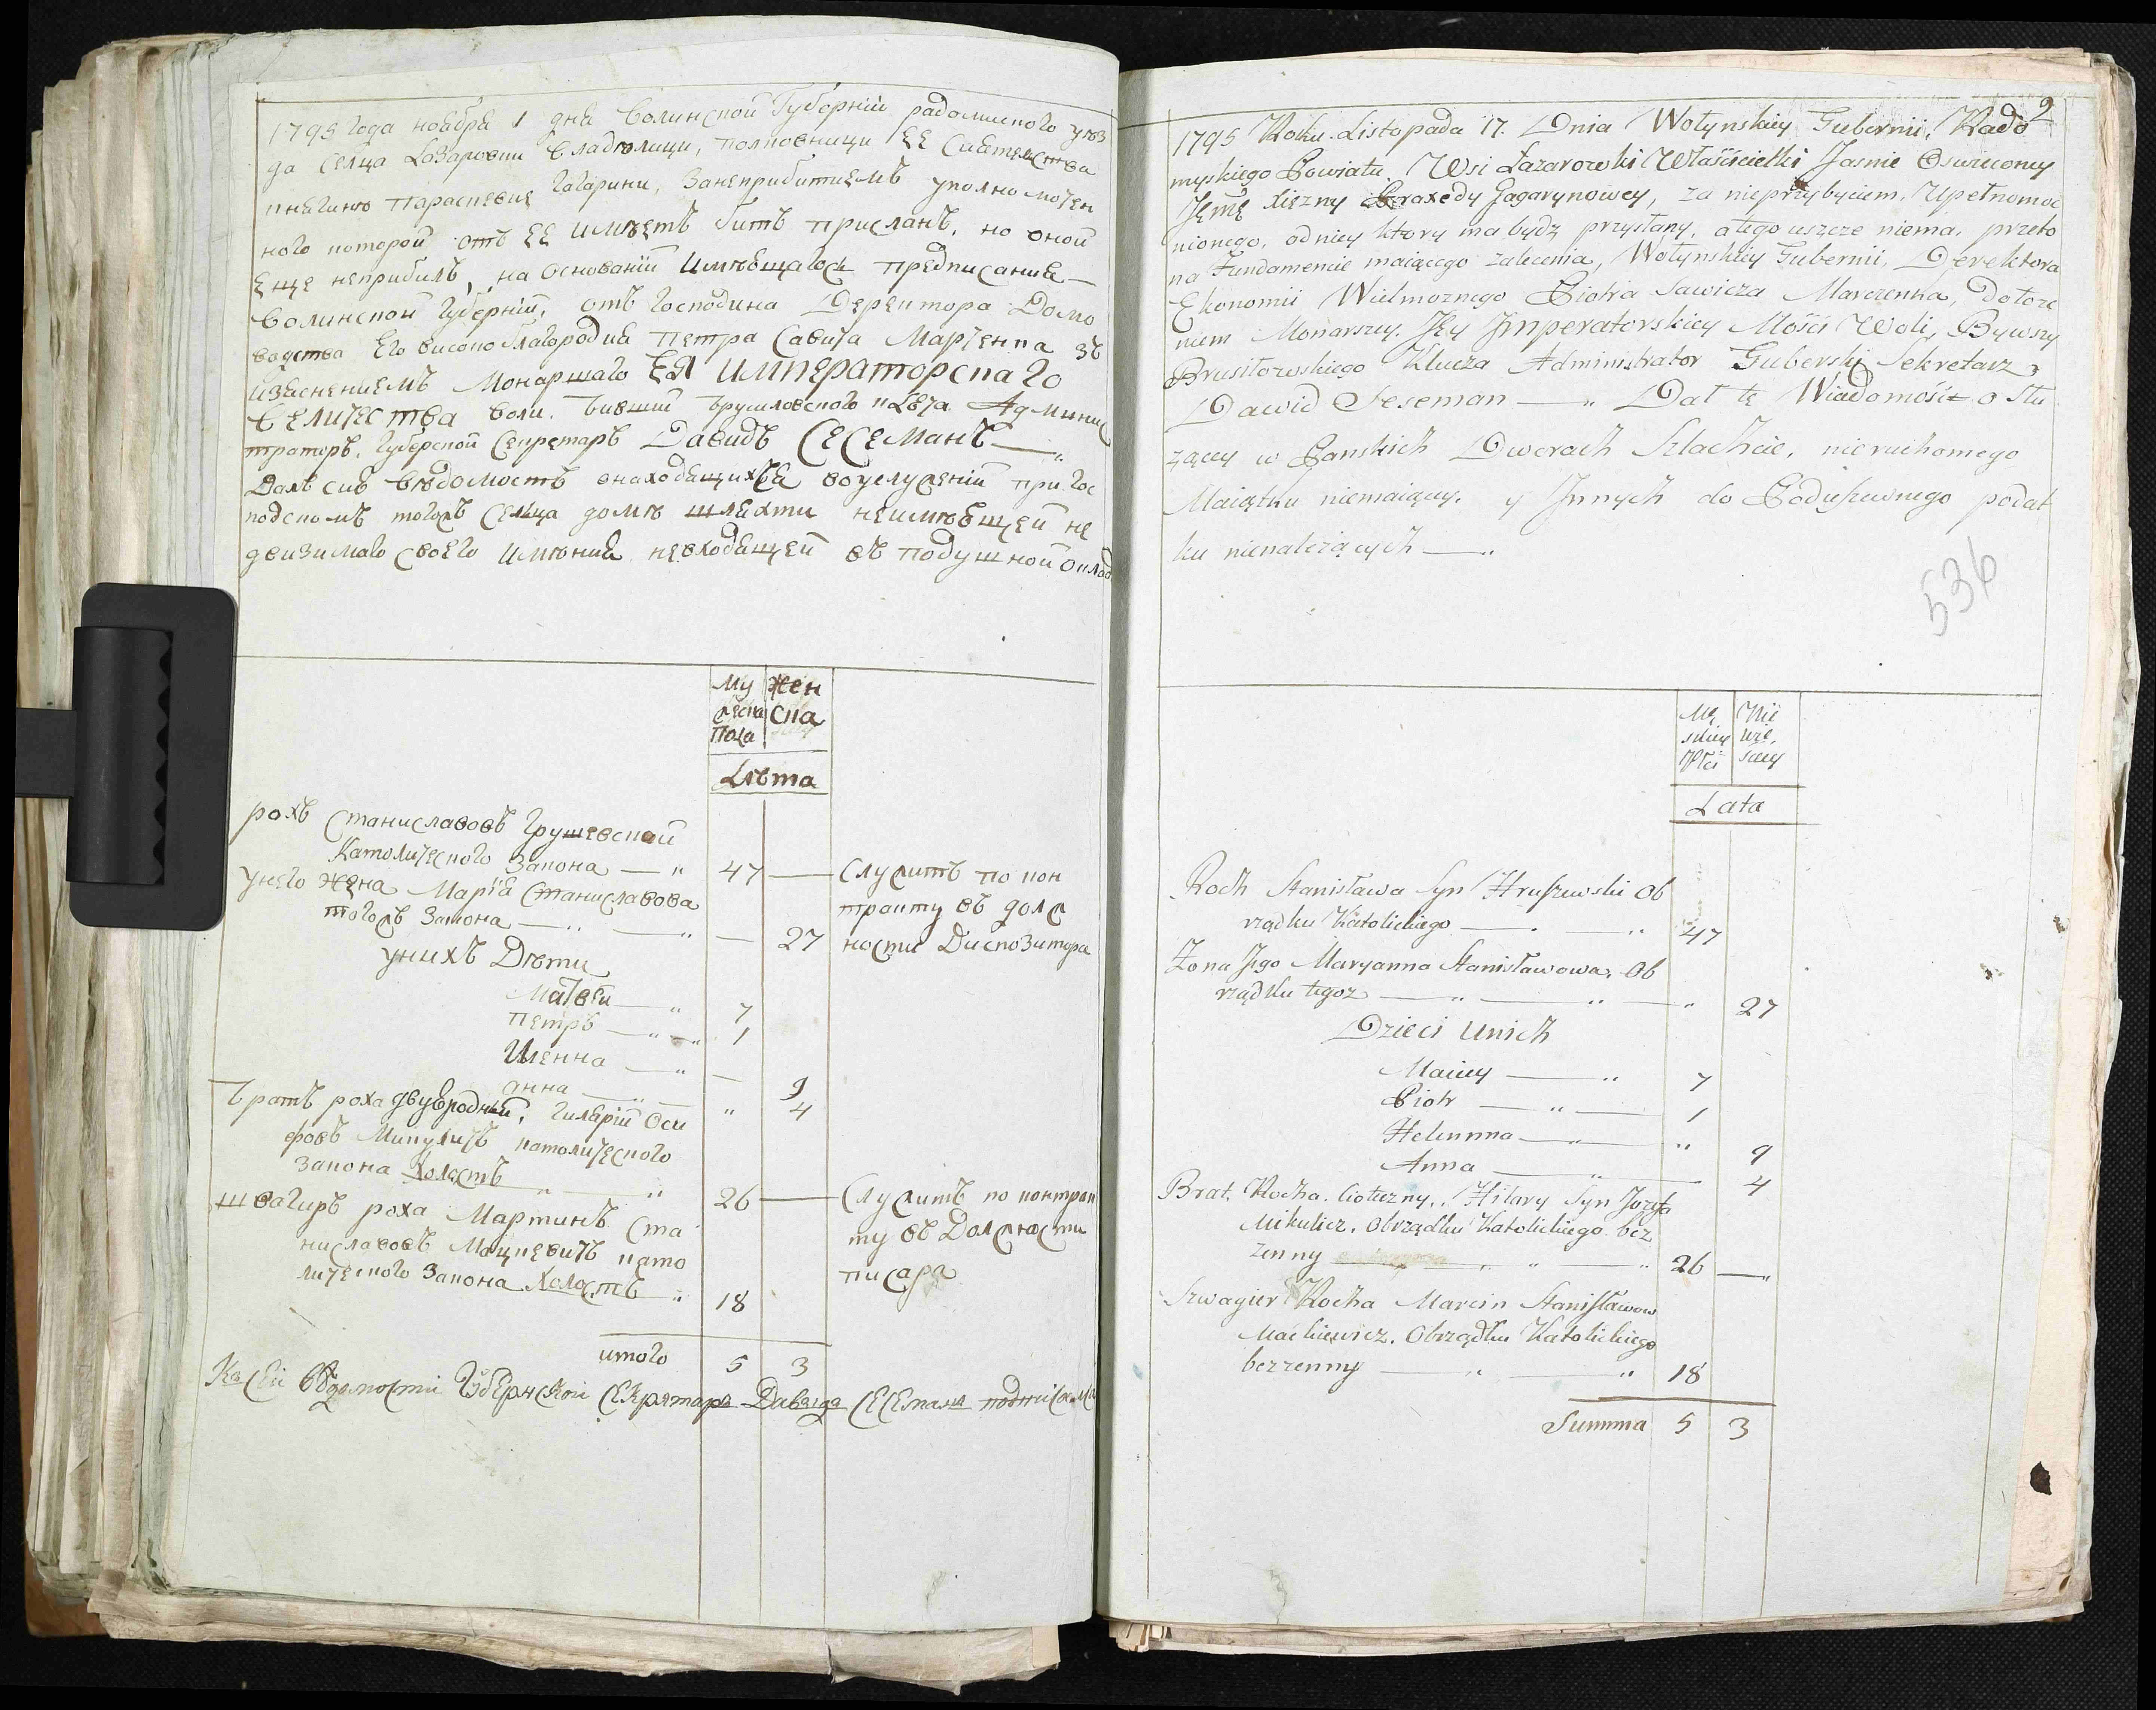 1795 года ноября 1 дня Волинской Губернїи радомисного уез
да селца Лазаровки владѣлици, полковници ЕЕ Сиятелства
княгиню параскевие Гагарини, Занеприбитиемъ уполномочен
ного которой отъ ЕЕ имѣетъ бить присланъ, но оной
еще неприбилъ, на основанїи имѣющагося предписания —
Волинской Губернїи, отъ Господина Деректора Домо
водства Его високоблагородия петра Савича Марченка зъ
изяснениемъ Монаршаго ЕЯ ИМПЕРАТОРСКАГО
ВЕЛИЧЕСТВА воли. бивший брусиловского ключа Админис
траторъ, Губерской Секретаръ Давидъ СЕСЕМАНЪ —
Далъ сию вѣдомость онаходящихся воуслуженїи при гос
подскомъ тогожъ селца домѣ шляхти неимѣющей не
движимаго своего имѣния невходящей въ подушной оклад
Му жен
жеска ска
Пола
Лѣта
рохъ Станиславовъ Грушевский
Католического Закона — " 47 — Служитъ по кон
унего жена Марїя Станиславова тракту въ долж
тогожъ Закона — " — " — 27 ности Диспозитора
унихъ Дѣти
Матвѣй — " 7
Петръ — " — " 1
Иленна — " — 9
анна — " — " 4
братъ роха двуродный, гиларїй Оси
фовъ Микуличъ католического
закона Холостъ " " 26 — Служитъ по контрак
швагиръ роха Мартинъ Ста ту въ Должности
ниславовъ Мацкевичъ като писара
лического Закона Холостъ " 18
итого 5 3
Ка сей вѣдомости Губернской секрятарь Давыдъ Сесеманъ подписался
2
1795 Roku. Listopada 17. Dnia Wołynskiey Gubernii, Rado
myskiego Powiatu. Wsi Łazarowki Właścicielki Jasnie Oswieconey
Jeymć Xięzny Praxedy Gagarynowey, za nieprzybyciem. Upełnomoc
nionego, odniey ktory ma bydz przysłany, atego ieszcze niema, przeto
na Fundamencie maiącego zalecenia, Wołynskiey Gubernii, Derektora
Ekonomii Wielmoznego Piotra Sawicza Marczenka, Dołoże
niem Monarszey. Jey Jmperatorskiey Mości Woli, Bywszy
Brusiłowskiego Klucza Administrator Guberski Sekretarz,
Dawid Seseman — " Dał tę Wiadomość o Słu
zącey w Panskich Dworach Szlachcie, nieruchomego
Maiątku niemaiącey. y Jnnych do Podusznego podat
ku nienalezących — "
536
Mę Nie
skiey wie,
Płci sciey
Lata
Roch Stanisława Syn Hruszewski Ob
rządku Katolickiego — . — " 47
Zona Jego Maryanna Stanisławowa. Ob
rządku tegoz — " — " — " 27
Dzieci Unich
Maciey — " 7
Piotr — " — 1
Helenna — " " 9
Anna — " — 4
Brat, Rocha. Cioteczny, Hilary Syn Jozefa
Mikulicz. Obrządku Katolickiego. bez
zenny " " — " 26 — "
Szwagier Rocha Marcin Stanisławow
Mackiewicz. Obrządku Katolickiego
bezzenny — " — " 18
Summa 5 3